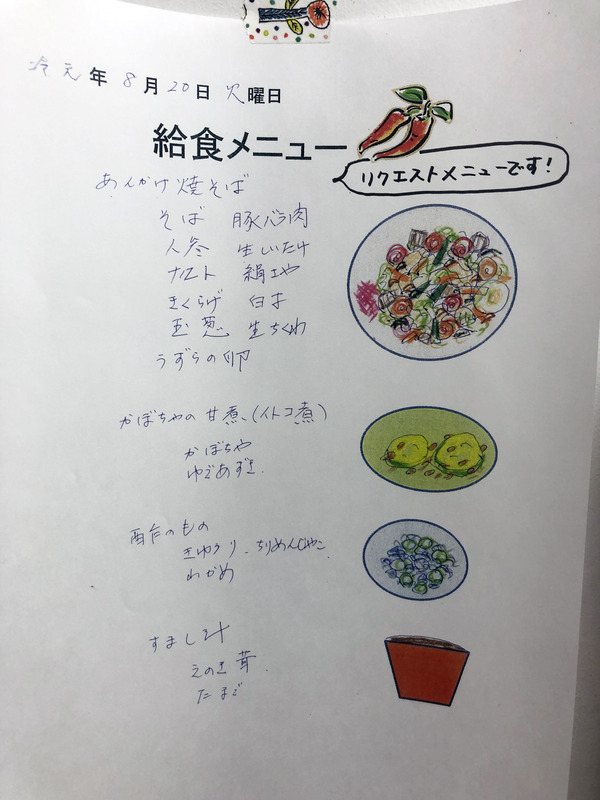 冷元年 8月20日 火曜日
給食メニュー
リクエストメニューです!
あんかけ焼そば
そば 豚バラ肉
人参 生いたけ
ナルト 絹さや
きくらげ 白才
玉葱 生ちくわ
うずらの卵
かぼちゃの甘煮(イトコ煮)
かぼちゃ
ゆであずき
酢のもの
きゅうり、ちりめんじゃこ
わかめ
すまし汁
えのき茸
たまご